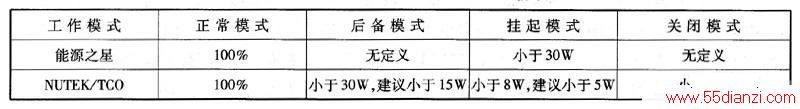 工作模式 正常模式 后备模式 挂起模式 关闭模式
能源之星 100% 无定义 小于30W 无定义
NUTEK/TCO 100% 小于30W,建议小于15W 小于8W,建议小于5W
www.55dianzi.com